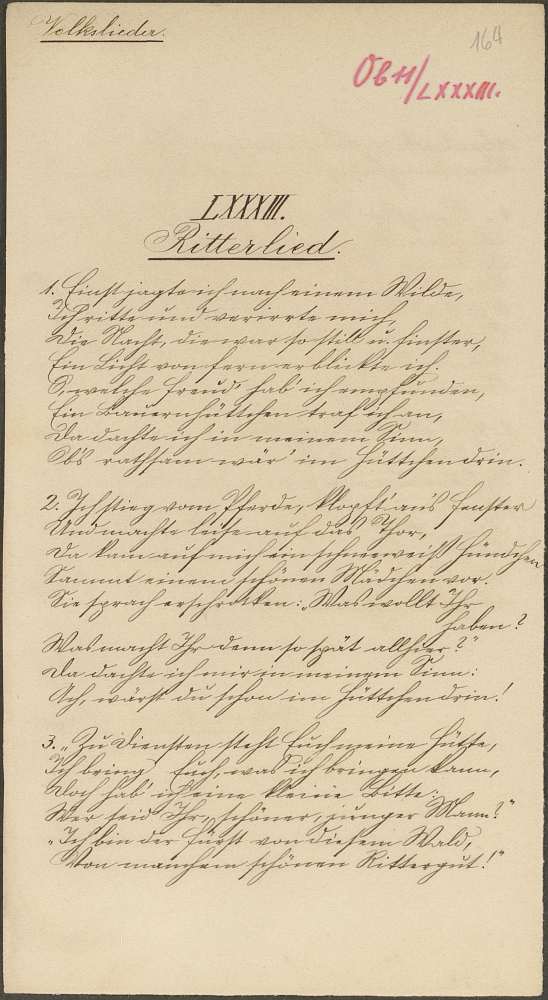 Volkslieder.
164
Ob 11/LXXXIII.
LXXXIII.
Ritterlied.
1. Einst jagte ich nach einem Wilde,
Ich ritte und verirrte mich,
Die Nacht, die war so still u. finster,
Ein Licht von fern erblickte ich.
O, welche Freud' hab' ich empfunden,
Ein Bauernhüttchen traf ich an,
Da dachte ich in meinem Sinn,
Ob's rathsam wär' im Hüttchen drin.
2. Ich stieg vom Pferde, klopft' an's Fenster
Und machte leise auf das Thor,
Da kam auf mich ein schneeweiß Hündchen
Sammt einem schönen Mädchen vor.
Sie sprach erschrocken: „Was wollt Ihr
haben?
Was macht Ihr denn so spät allhier?"
Da dachte ich mir in meinem Sinn:
Ach, wärst du schon im Hüttchen drin!
3. „Zu Diensten steht Euch meine Hütte,
Ich bring' Euch, was ich bringen kann,
Doch hab' ich eine kleine Bitte:
Wer seid Ihr, schöner, junger Mann?"
„Ich bin der Fürst von diesem Wald,
Von manchem schönen Rittergut!"